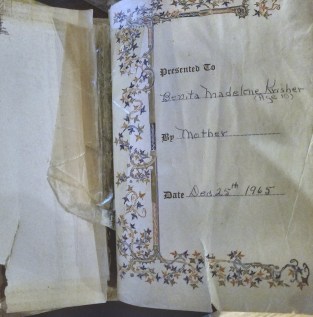 Presented To
Bonita Madelene Krisher
(Age 10)
By Mother
Date Dec 25th 1965